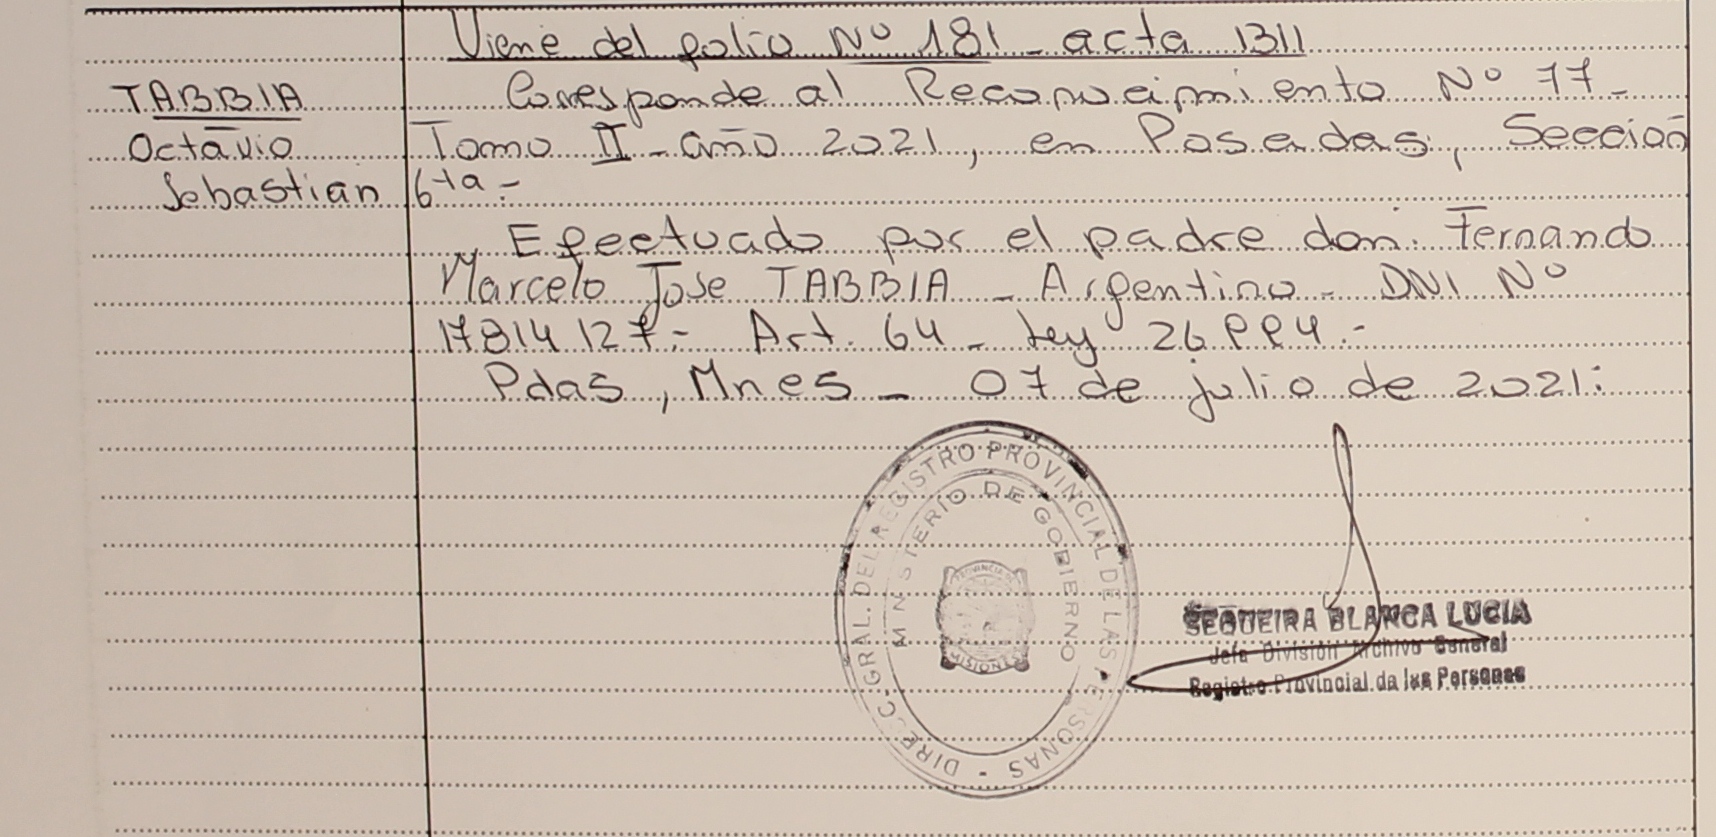 Viene del folio Nº 181 - acta 1311
TABBIA
Octavio
Sebastian
Corresponde al Reconocimiento Nº 77 -
Tomo II - año 2021, en Posadas, Sección
6ta -
Efectuado por el padre don: Fernando
Marcelo Jose TABBIA - Argentino - DNI Nº
17814127 - Art. 64 - Ley 26994 -
Pdas, Mnes - 07 de julio de 2021:
DIREC. GRAL. DEL REGISTRO PROVINCIAL DE LAS PERSONAS -
MINISTERIO DE GOBIERNO
PROVINCIA DE
MISIONES
SEQUEIRA BLANCA LUCIA
Jefa División Archivo General
Registro Provincial de las Personas